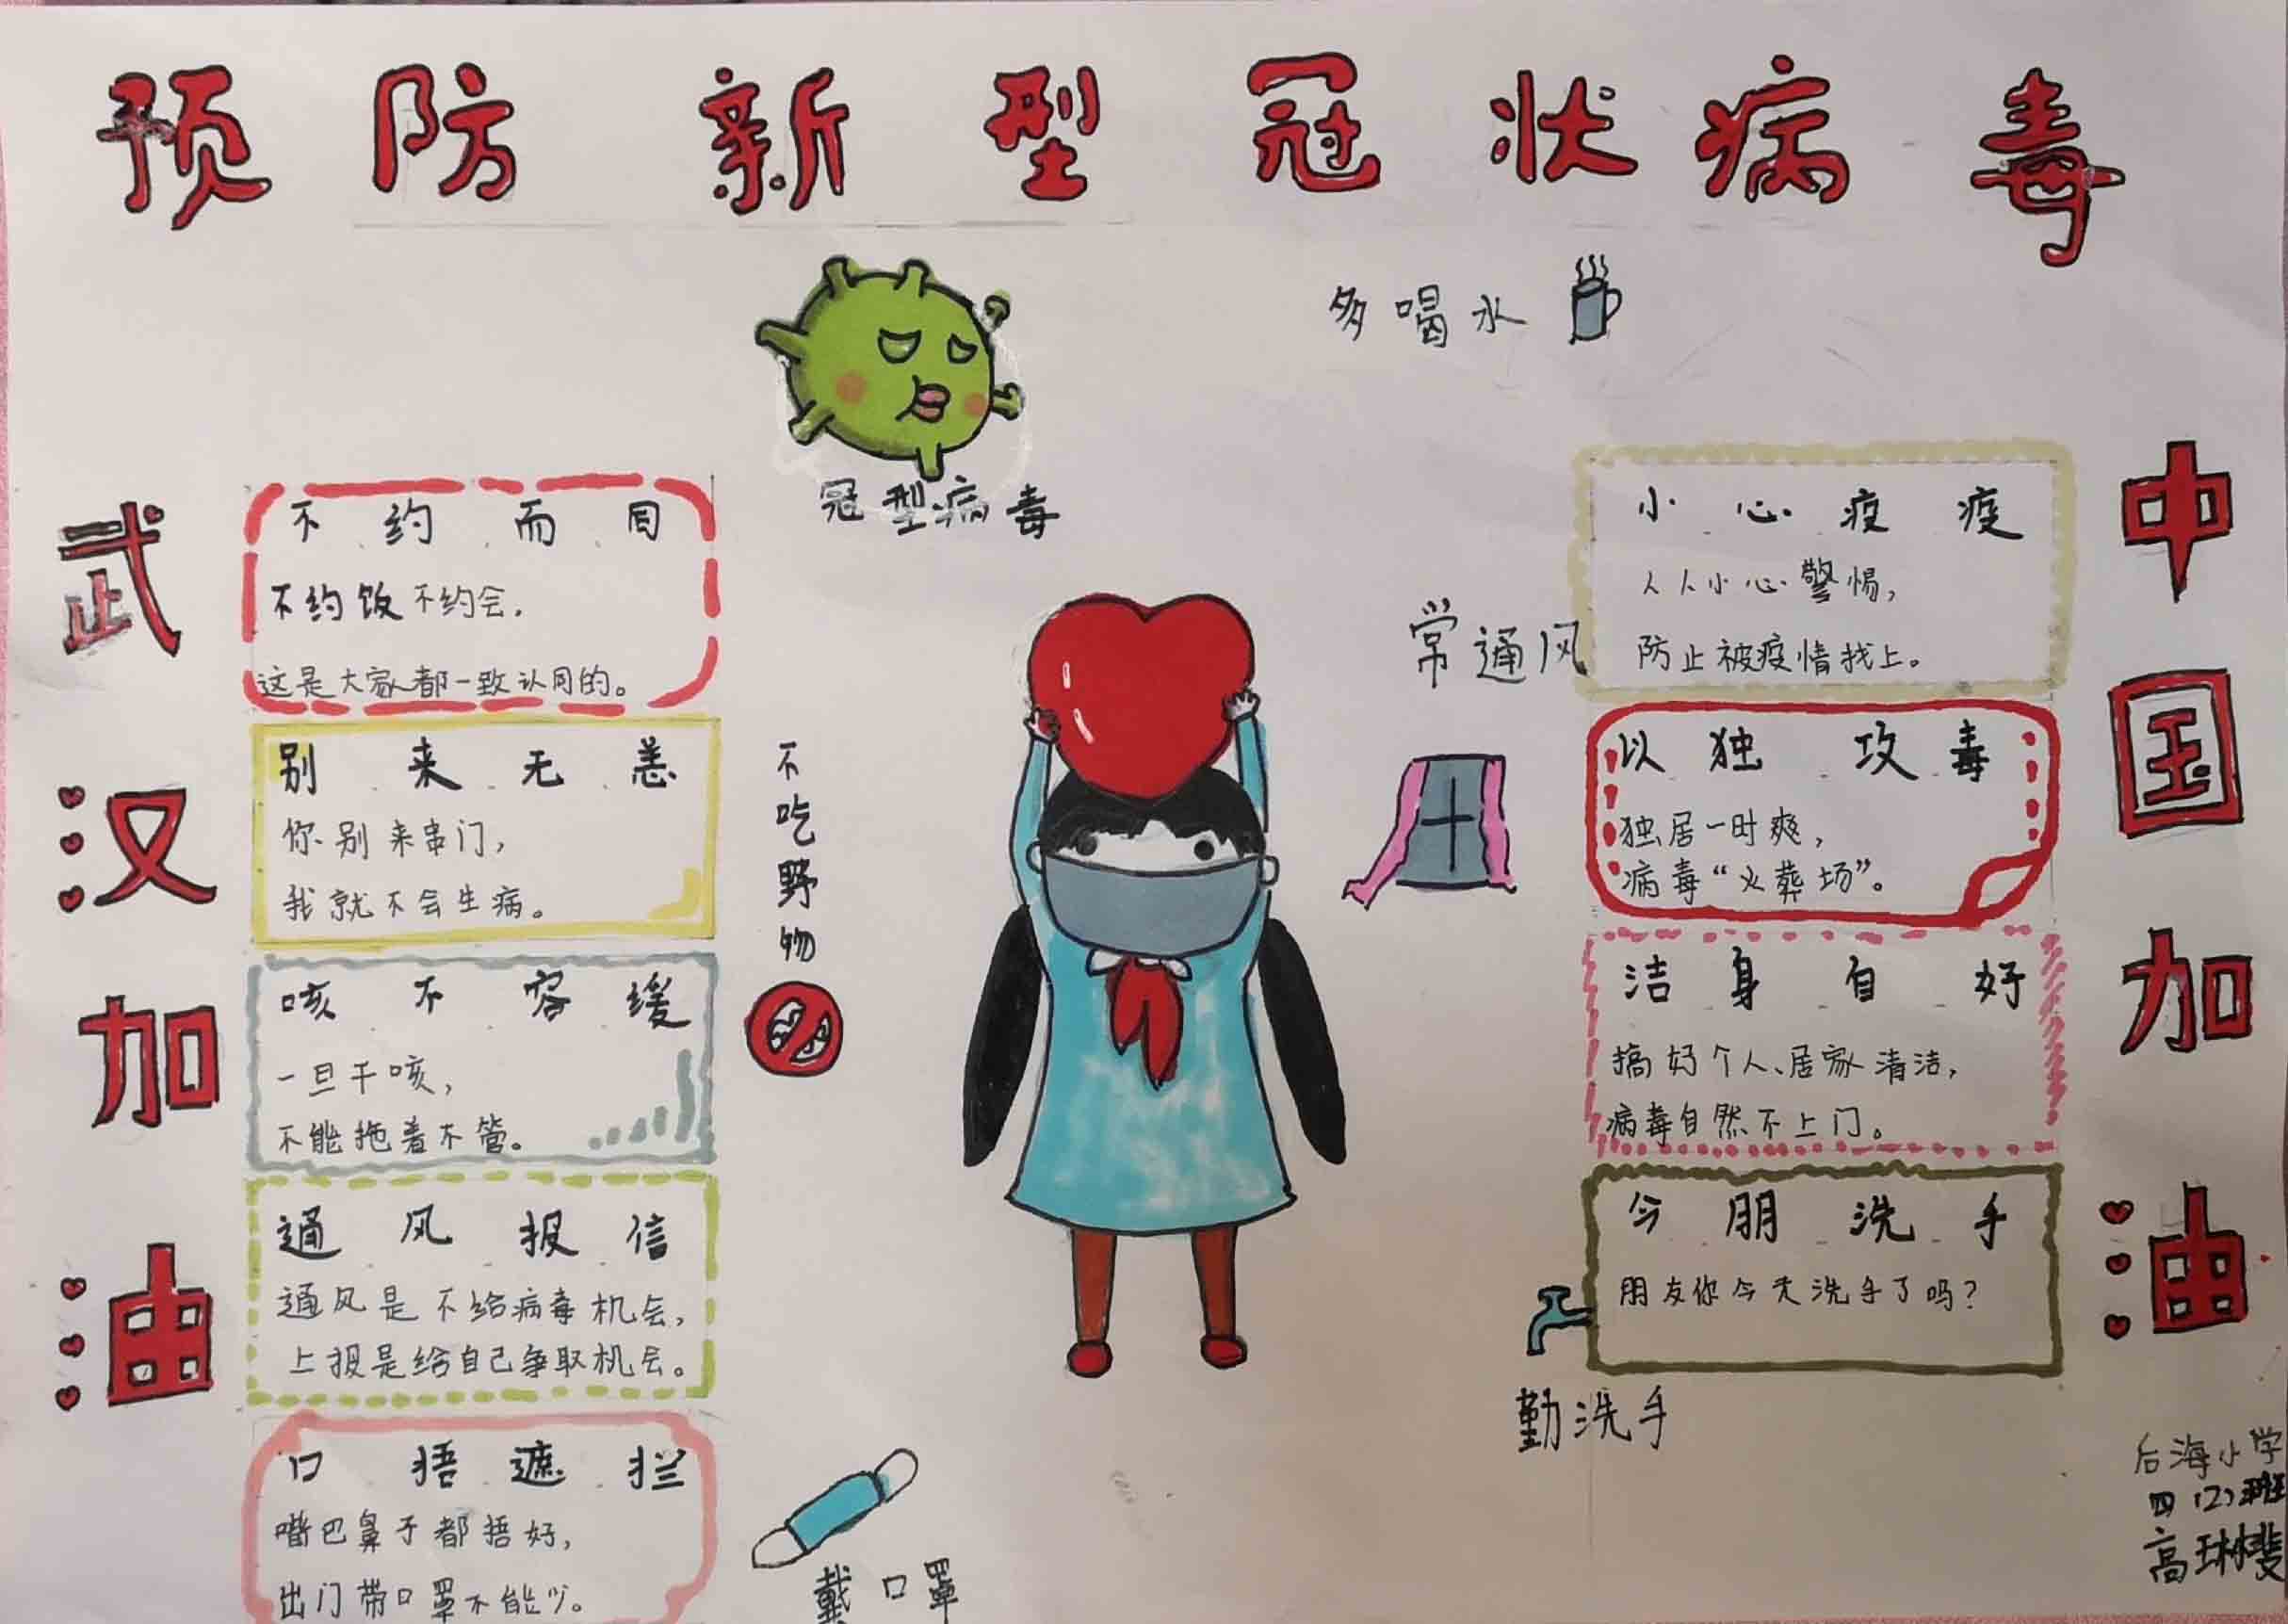 预防新型冠状病毒
多喝水
冠型病毒
武汉加油
不约而同
不约饭不约会,
这是大家都一致认同的。
别来无恙
你别来串门,
我就不会生病。
咳不容缓
一旦干咳,
不能拖着不管。
通风报信
通风是不给病毒机会,
上报是给自己争取机会。
口捂遮拦
嘴巴鼻子都捂好,
出门带口罩不能少。
不吃野物
戴口罩
常通风
小心疫疫
人人小心警惕,
防止被疫情找上。
以独攻毒
独居一时爽,
病毒“火葬场”。
洁身自好
搞好个人、居家清洁,
病毒自然不上门。
今朋洗手
朋友你今天洗手了吗?
勤洗手
中国加油
后海小学
四(2)班
高琳斐